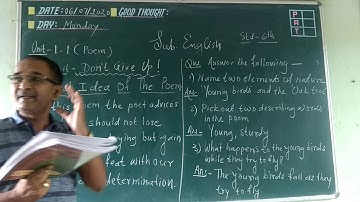 DATE:-06/07/2020
GOOD THOUGHT:-
DAY:- Monday
P
A
T
Unit-1.1 (Poem)
Sub. English
Std- 6th
Don't Give Up!
Idea Of The Poem
poem the poet advices
should not lose
but gain
feat with our
determination.
Que. Answer the following -
1) Name two elements of nature
Ans:- Young birds and the Oak tree
2) Pick out two describing words
in the poem
Ans- Young, sturdy
3) What happens to the young birds
while they try to fly?
Ans- The young birds fall as they
try to fly